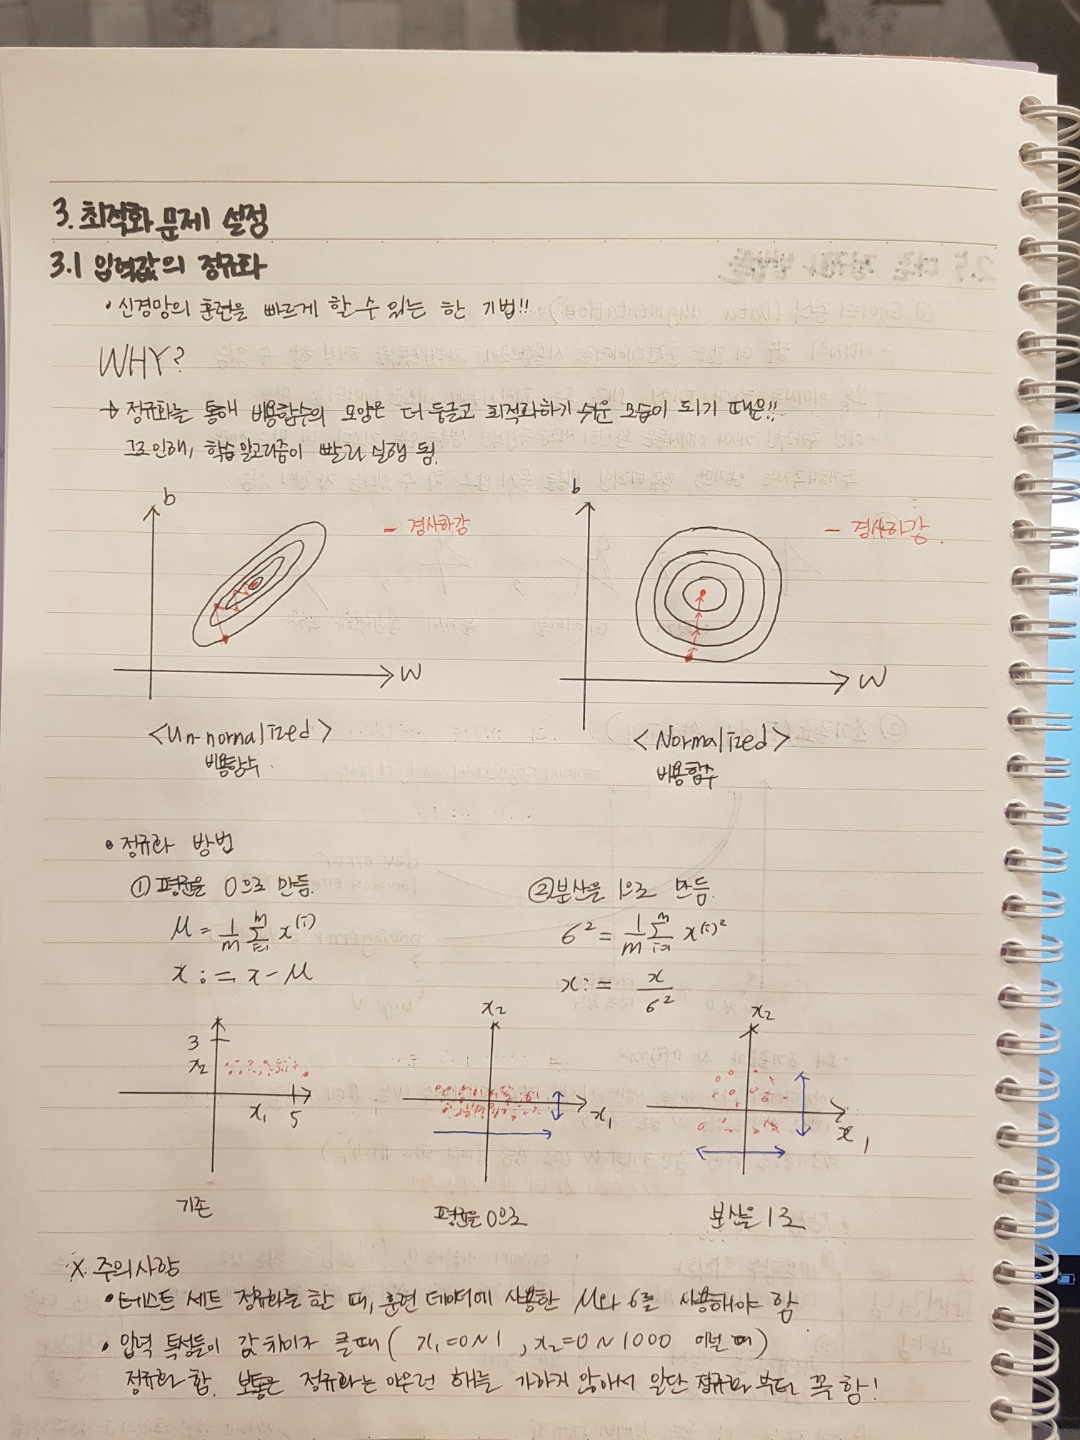 3. 최적화 문제 설정
3.1 입력값의 정규화
• 신경망의 훈련을 빠르게 할 수 있는 한 기법!!
WHY?
→ 정규화를 통해 비용함수의 모양은 더 둥글고 최적화하기 쉬운 모습이 되기 때문!!
그로 인해, 학습 알고리즘이 빨리 실행 됨.
b
- 경사하강
W
<Un-normalized>
비용함수.
b
- 경사하강.
W
<Normalized>
비용함수
• 정규화 방법
① 평균을 0으로 만듬.
μ = 1/m Σ_{i=1}^{m} x^{(i)}
x := x - μ
② 분산을 1으로 만듬.
6² = 1/m Σ_{i=1}^{m} x^{(i)²}
x := x / 6²
3
x₂
x₁ 5
기존
x₂
x₁
평균을 0으로
x₂
x₁
분산을 1로
※ 주의사항
• 테스트 세트 정규화를 할 때, 훈련 데이터에 사용한 μ와 6를 사용해야 함
• 입력 특성들이 값 차이가 클 때 ( x₁=0~1 , x₂=0~1000 이럴 때)
정규화 함. 보통은 정규화는 아무런 해를 가하지 않아서 일단 정규화 부터 꼭 함!